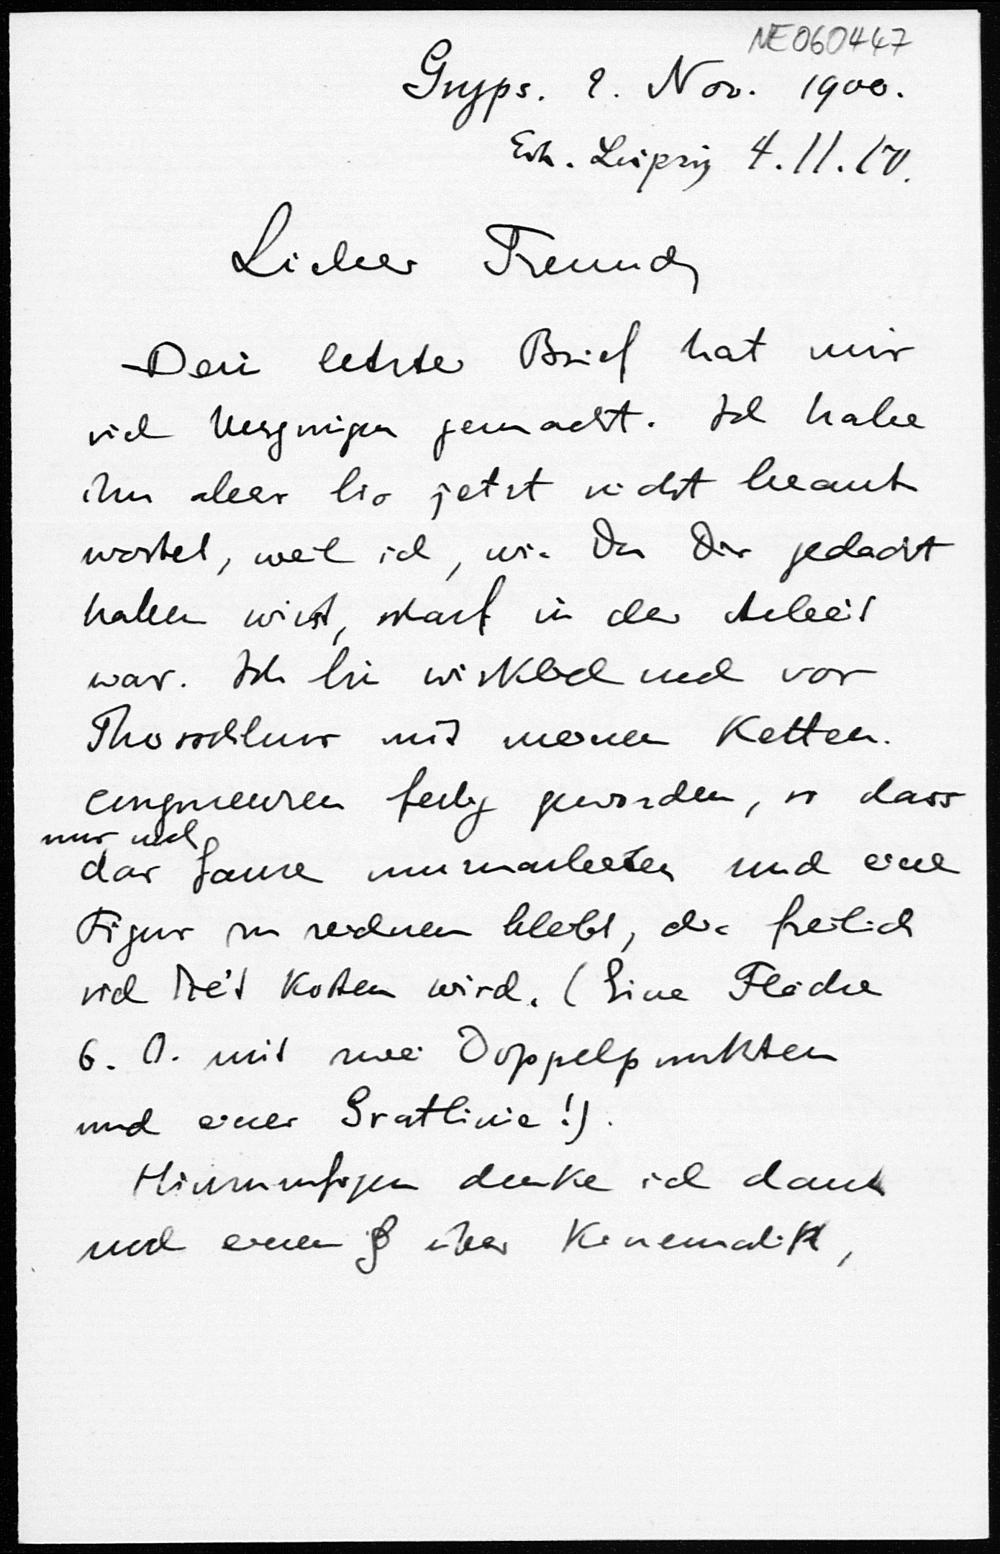 NE060447
Gryps. 2. Nov. 1900.
Erh. Leipzig 4.11.
Lieber Freund,
Dein letzter Brief hat mir
viel Vergnügen gemacht. Ich habe
ihn aber bis jetzt nicht beant
wortet, weil ich, wie Du Dir gedacht
haben wirst, scharf in der Arbeit
war. Ich bin wirklich und vor
Thorschluss mit meinen Ketten.
congruenzen fertig geworden, so dass
nur noch
das Ganze umzuarbeiten und eine
Figur zu zeichnen bleibt, die freilich
viel Zeit kosten wird. (Eine Fläche
6. O. mit zwei Doppelpunkten
und einer Gratlinie!).
Hinzuzufügen denke ich dann
noch einen § über Kinematik,